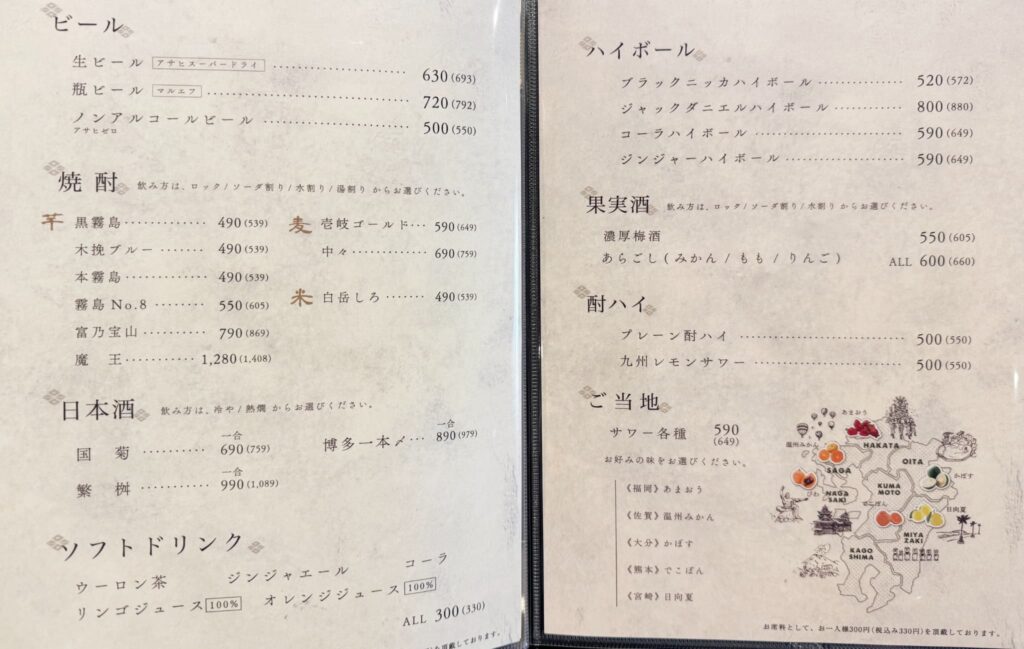 ビール
生ビール アサヒスーパードライ 630(693)
瓶ビール マルエフ 720(792)
ノンアルコールビール 500(550)
アサヒゼロ
焼酎 飲み方は、ロック/ソーダ割り/水割り/湯割り からお選びください。
芋 黒霧島 490(539)
木挽ブルー 490(539)
本霧島 490(539)
霧島No.8 550(605)
富乃宝山 790(869)
魔王 1,280(1,408)
麦 壱岐ゴールド 590(649)
中々 690(759)
米 白岳しろ 490(539)
日本酒 飲み方は、冷や/熱燗 からお選びください。
国菊 一合 690(759)
繁桝 一合 990(1,089)
博多一本〆 一合 890(979)
ソフトドリンク
ウーロン茶 ジンジャエール コーラ
リンゴジュース 100% オレンジジュース 100%
ALL 300(330)
を頂戴しております。
ハイボール
ブラックニッカハイボール 520(572)
ジャックダニエルハイボール 800(880)
コーラハイボール 590(649)
ジンジャーハイボール 590(649)
果実酒 飲み方は、ロック/ソーダ割り/水割り からお選びください。
濃厚梅酒 550(605)
あらごし(みかん/もも/りんご) ALL 600(660)
酎ハイ
プレーン酎ハイ 500(550)
九州レモンサワー 500(550)
ご当地
サワー各種 590
(649)
お好みの味をお選びください。
《福岡》あまおう
《佐賀》温州みかん
《大分》かぼす
《熊本》でこぽん
《宮崎》日向夏
あまおう
HAKATA
温州みかん
SAGA
OITA
かぼす
びわ
NAGA
SAKI
KUMA
MOTO
でこぽん
日向夏
MIYA
ZAKI
KAGO
SHIMA
お席料として、お一人様300円(税込み330円)を頂戴しております。